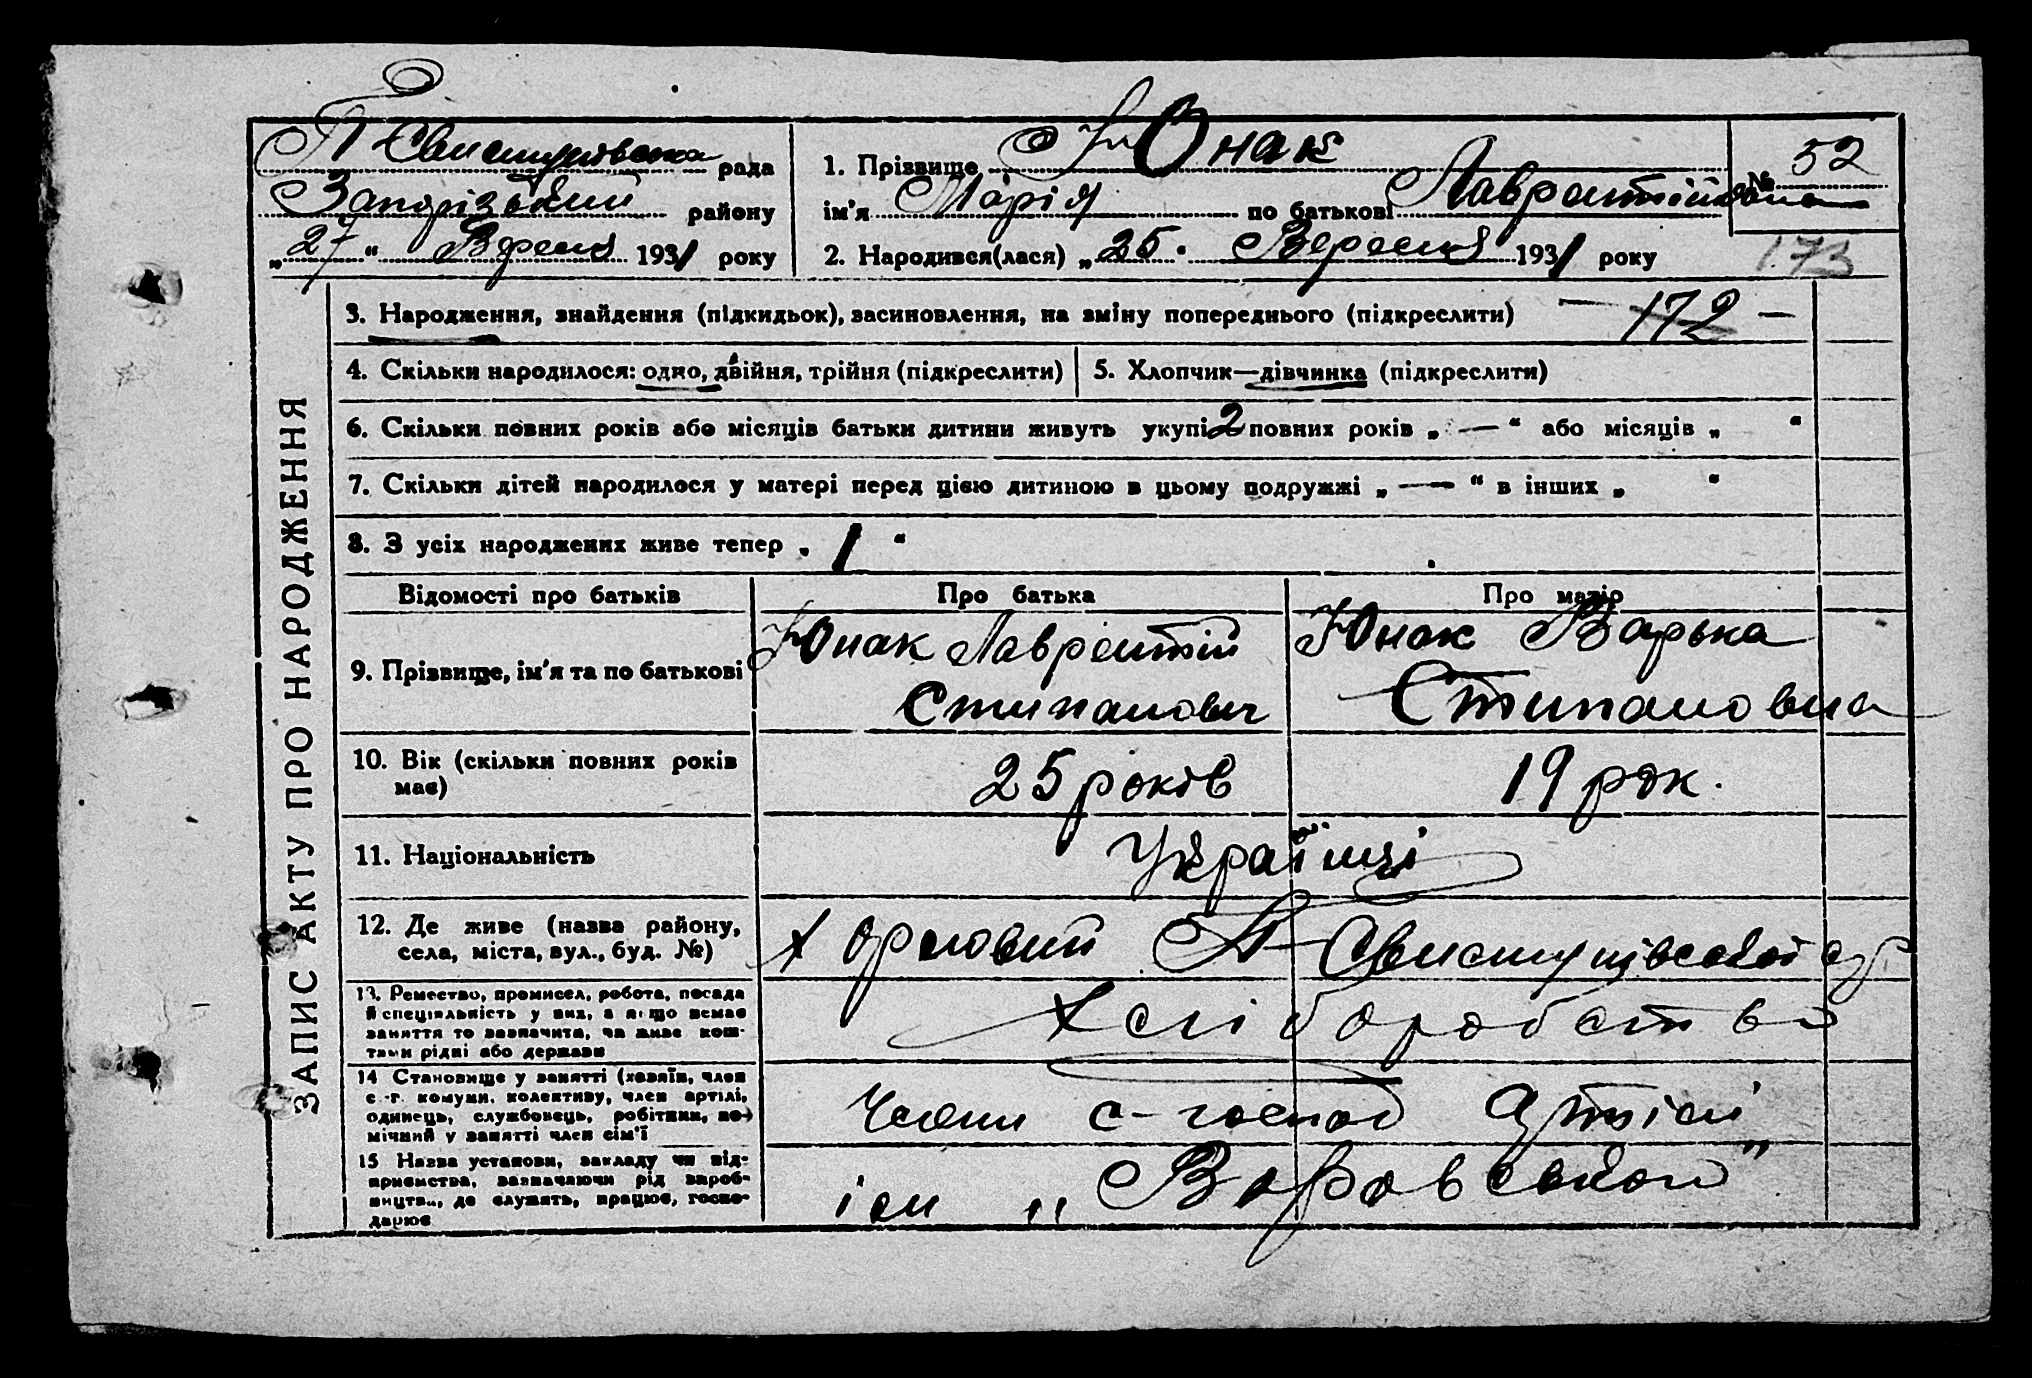 П Свистунівська рада
Запорізький району
„27“ Вересня 1931 року
1. Прізвище Юнак
ім'я Марія по батькові Лаврентіївна
2. Народився(лася) „25" Вересня 1931 року
№ 52
173
ЗАПИС АКТУ ПРО НАРОДЖЕННЯ
3. Народження, знайдення (підкидьок), засиновлення, на зміну попереднього (підкреслити) — 172 —
4. Скільки народилося: одно, двійня, трійня (підкреслити)
5. Хлопчик—дівчинка (підкреслити)
6. Скільки повних років або місяців батьки дитини живуть укупі 2 повних років „ — “ або місяців „ “
7. Скільки дітей народилося у матері перед цією дитиною в цьому подружжі „ — “ в інших „ “
8. З усіх народжених живе тепер „ 1 “
Відомості про батьків
Про батька
Про матір
9. Прізвище, ім'я та по батькові
Юнак Лаврентій
Стипанович
Юнак Варька
Стипановна
10. Вік (скільки повних років
має)
25 років
19 рок.
11. Національність
Українці
12. Де живе (назва району,
села, міста, вул., буд. №)
П Свистунівської с/р
13. Ремество, промисел, робота, посада
й спеціяльність у них, а якщо немає
заняття то зазначити, чи живе кош-
тами рідні або держави
Хліборобство
14 Становище у занятті (хазяїн, член
с.-г. комуни, колективу, член артілі,
одинець, службовець, робітник, по-
мічний у занятті член сім'ї
Члени с-господ Артілі
15 Назва установи, закладу чи під-
приємства, зазначаючи рід вироб-
ництва, де служить, працює, госпо-
дарює
ім „Воровського"